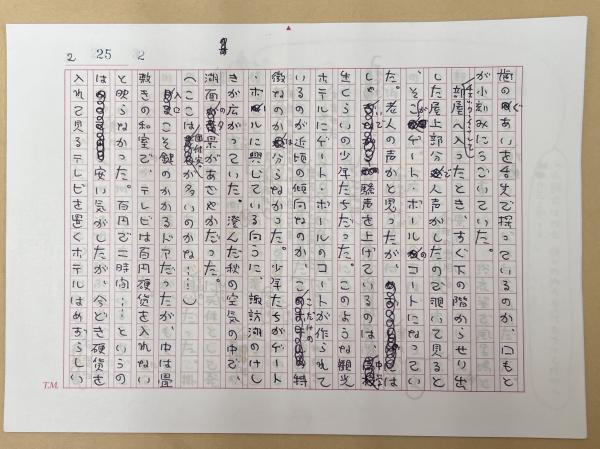 歯のぐあいを舌先で探っているのか、口もと
が小刻みにうごいていた。
部屋へ入ったとき、すぐ下の階からせり出
した屋上部分で人声がしたので覗いて見ると
、そこがゲート・ボールのコートになってい
た。老人の声かと思ったが、は
しゃいで騒声を上げているのは、中学
生くらいの少年たちだった。このような観光
ホテルにゲート・ボールのコートが作られて
いるのが近頃の傾向なのか、ここだけの特
徴なのかは分らなかった。少年たちがゲート
・ボールに興じている向うに、諏訪湖のけし
きが広がっていた。澄んだ秋の空気の中で、
湖面の夕景があざやかだった。
(ここは、が多いのかな……)
入口こそ鍵のかかるドアだったが、中は畳
敷きの和室で、テレビは百円硬貨を入れない
と映らなかった。百円で二時間……というの
は安い気がしたが、今どき硬貨を
入れて見るテレビを置くホテルはめずらしい
2 25 2
T.M.